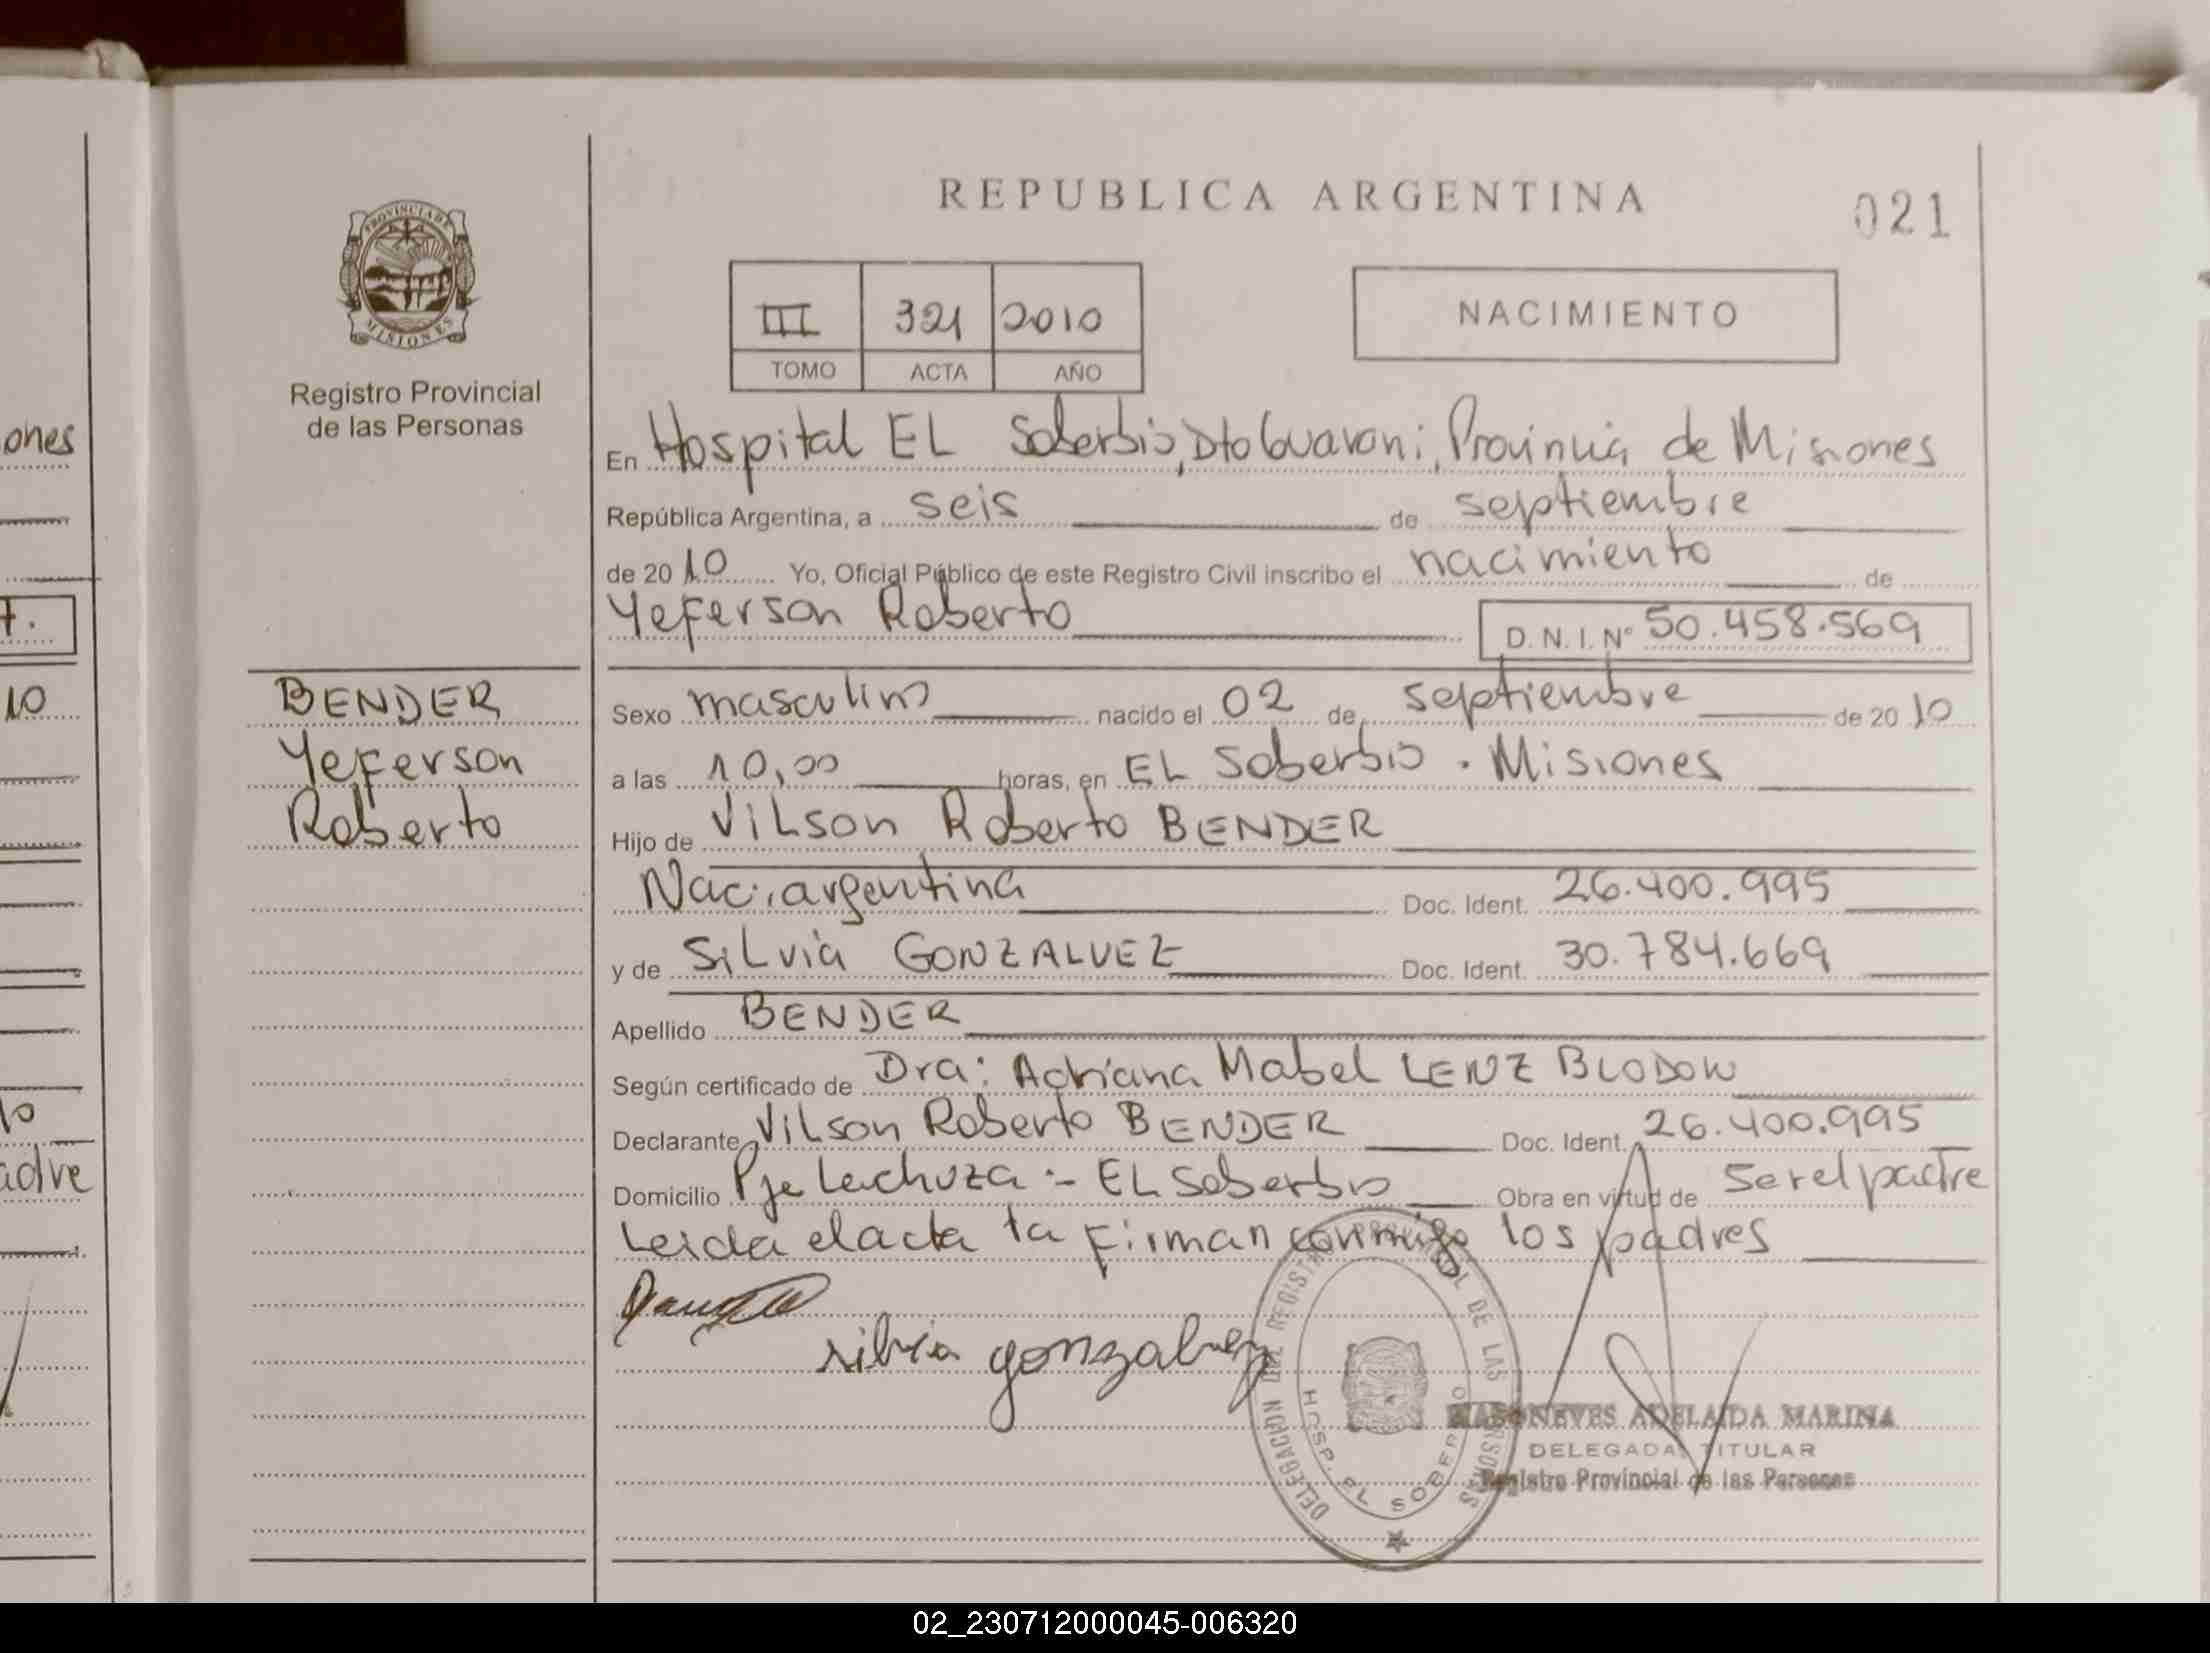 REPUBLICA ARGENTINA
021
PROVINCIA DE
MISIONES
Registro Provincial
de las Personas
III 321 2010
TOMO ACTA AÑO
NACIMIENTO
ones
En Hospital EL Soberbio, Dto Guarani, Provincia de Misiones
República Argentina, a seis de septiembre
de 2010 Yo, Oficial Público de este Registro Civil inscribo el nacimiento de
Yeferson Roberto D.N.I. Nº 50.458.569
7.
10
BENDER
Yeferson
Roberto
Sexo masculino nacido el 02 de septiembre de 2010
a las 10,00 horas, en EL Soberbio . Misiones
Hijo de Vilson Roberto BENDER
Nac: argentina Doc. Ident. 26.400.995
y de Silvia GONZALVEZ Doc. Ident. 30.784.669
Apellido BENDER
Según certificado de Dra: Adriana Mabel LENZ BLODOW
Declarante Vilson Roberto BENDER Doc. Ident. 26.400.995
adre
Domicilio Pje Lechuza - EL Soberbio Obra en virtud de ser el padre
Leida el acta la firman conmigo los padres
silvia gonzalvez
DELEGACION DEL REGISTRO PROVINCIAL DE LAS PERSONAS
HOSP. EL SOBERBIO
ADELAIDA MARINA
DELEGADA TITULAR
Registro Provincial de las Personas
02_230712000045-006320